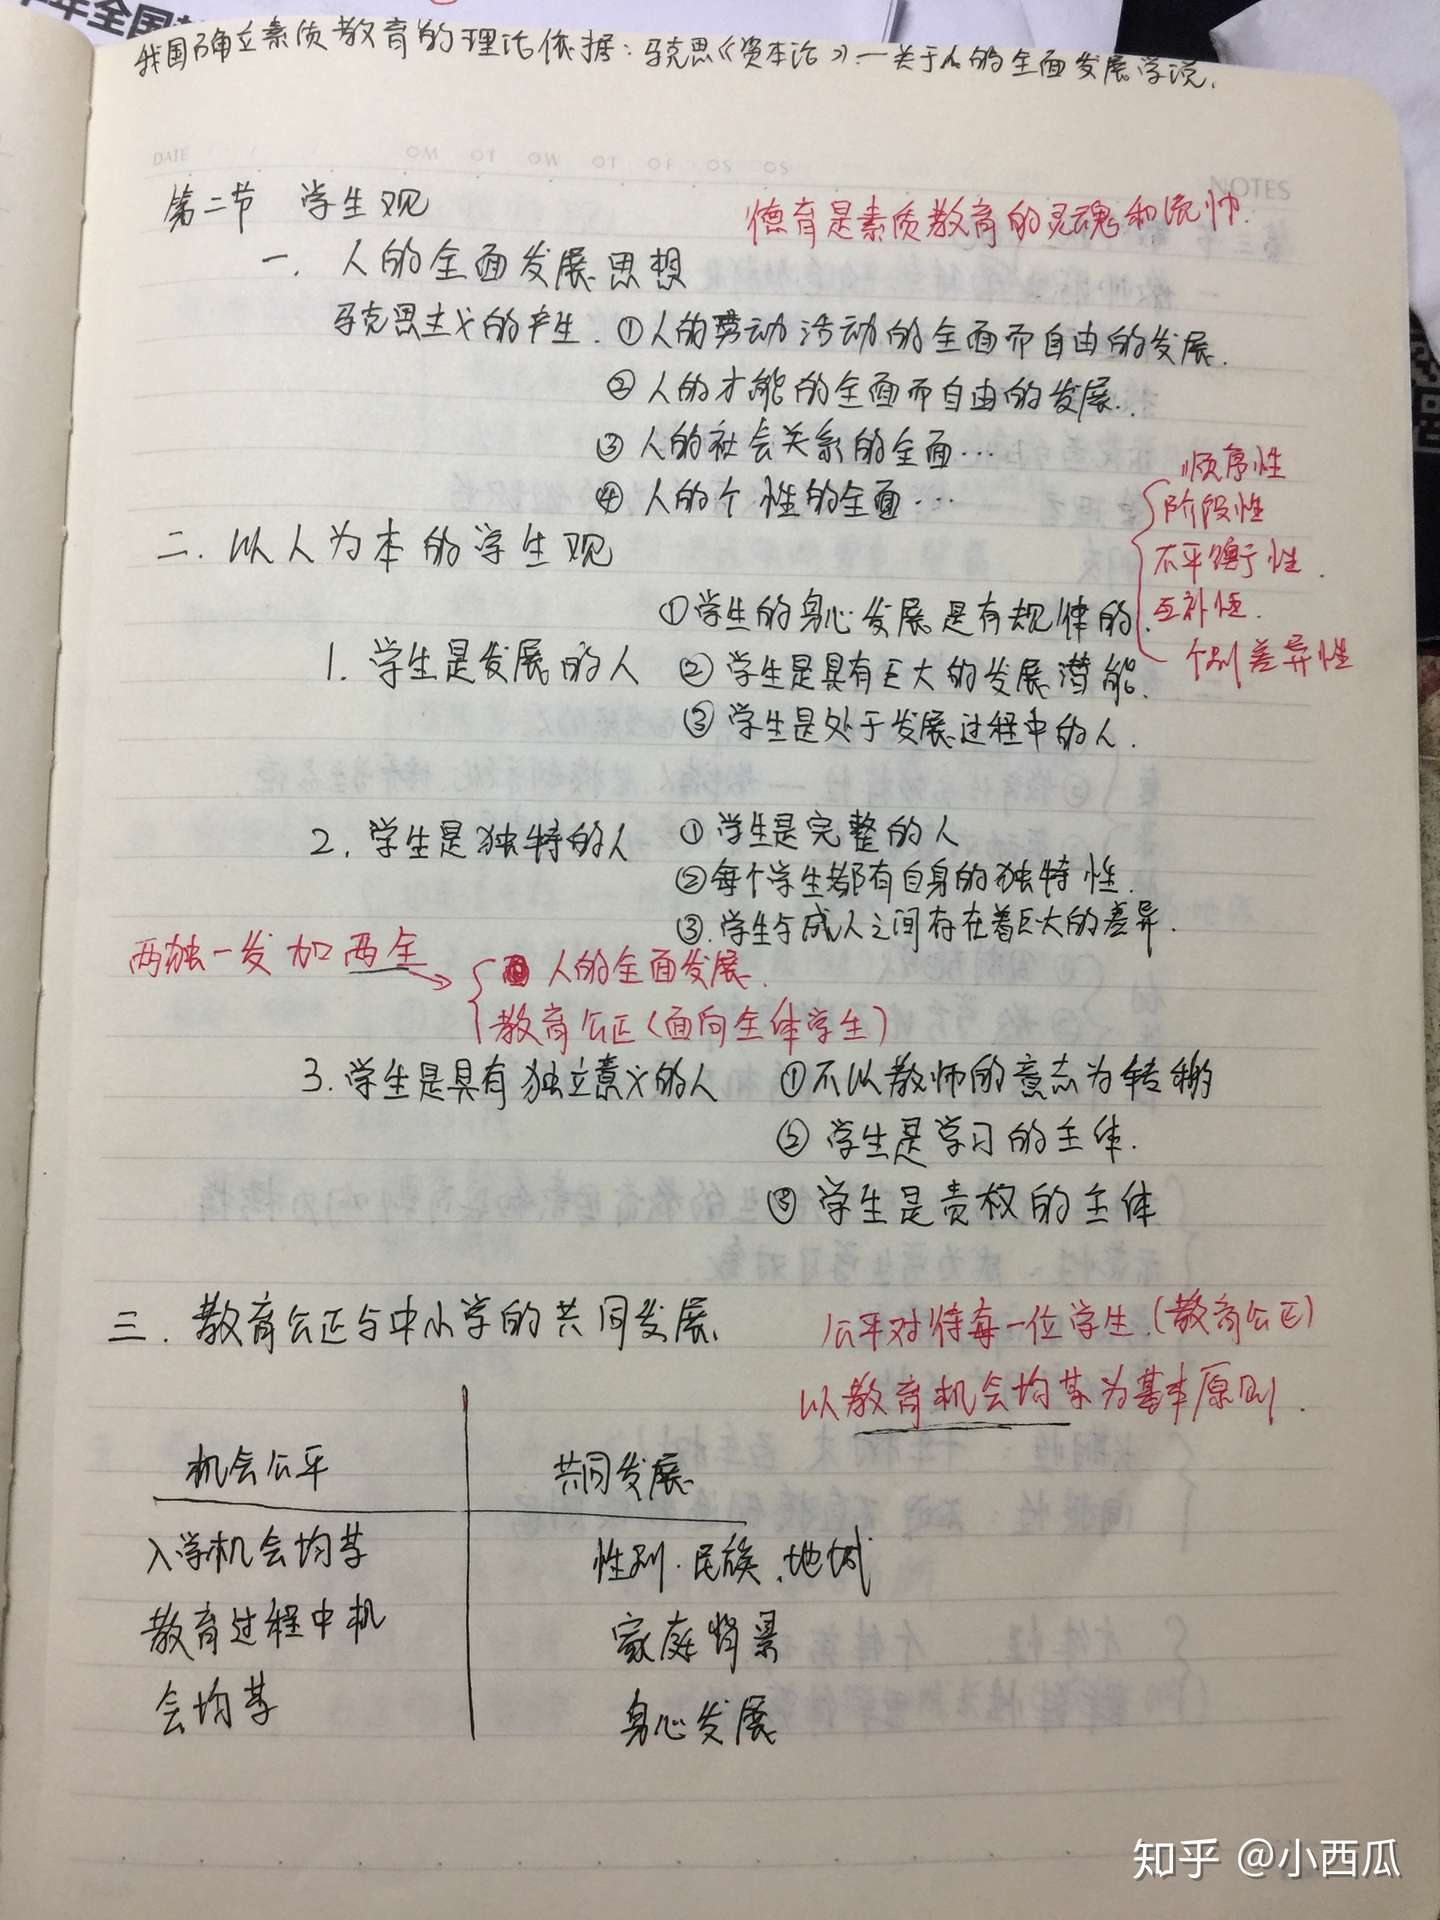 年全国
我国确立素质教育的理论依据：马克思《资本论》—关于人的全面发展学说.
DATE
NOTES
第二节 学生观
德育是素质教育的灵魂和统帅.
一. 人的全面发展思想
马克思主义的产生. ①人的劳动活动的全面而自由的发展.
②人的才能的全面而自由的发展..
③人的社会关系的全面…
④人的个性的全面…
顺序性
阶段性
不平衡性.
互补性.
个别差异性
二. 以人为本的学生观
①学生的身心发展是有规律的.
1. 学生是发展的人 ②学生是具有巨大的发展潜能.
③学生是处于发展过程中的人.
2. 学生是独特的人 ①学生是完整的人
②每个学生都有自身的独特性.
③.学生与成人之间存在着巨大的差异.
两独一发加两全
人的全面发展.
教育公正(面向全体学生)
3. 学生是具有独立意义的人 ①不以教师的意志为转移
②学生是学习的主体.
③学生是责权的主体
三. 教育公正与中小学的共同发展.
公平对待每一位学生.(教育公正)
以教育机会均等为基本原则.
机会公平 共同发展
入学机会均等 性别.民族.地域
教育过程中机 家庭背景
会均等 身心发展
知乎 @小西瓜